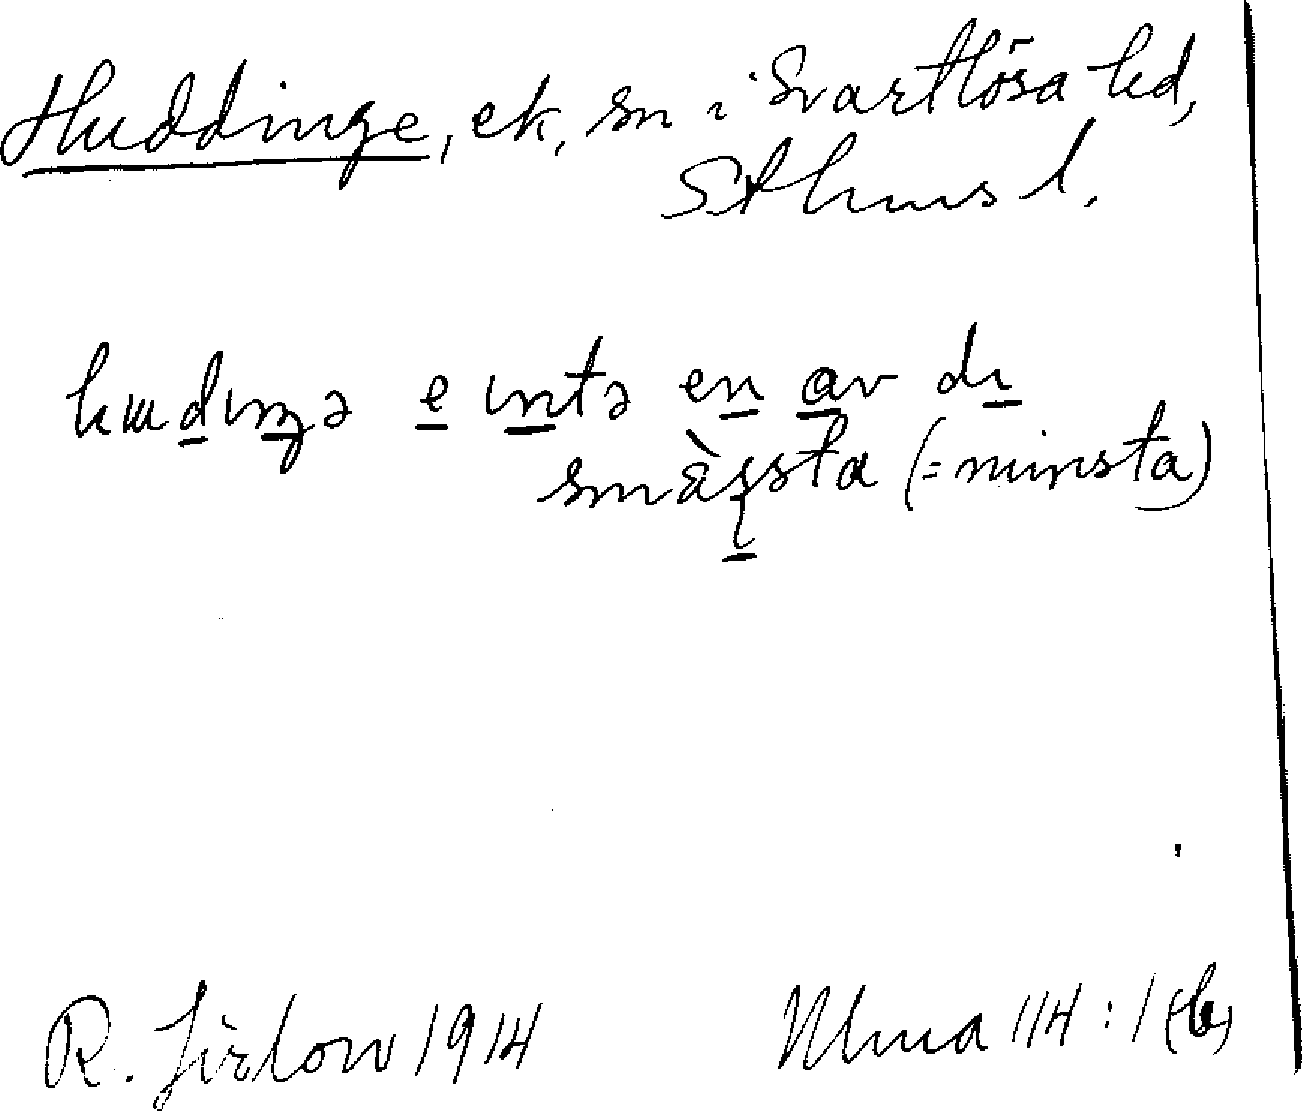 Huddinge, ek, sn i Svartlösa hd,
Sthms l.
hɯdıŋə e ıntə en av dı
smàssta (=minsta)
R. Jirlow 1914
Ulma 114:1(6)